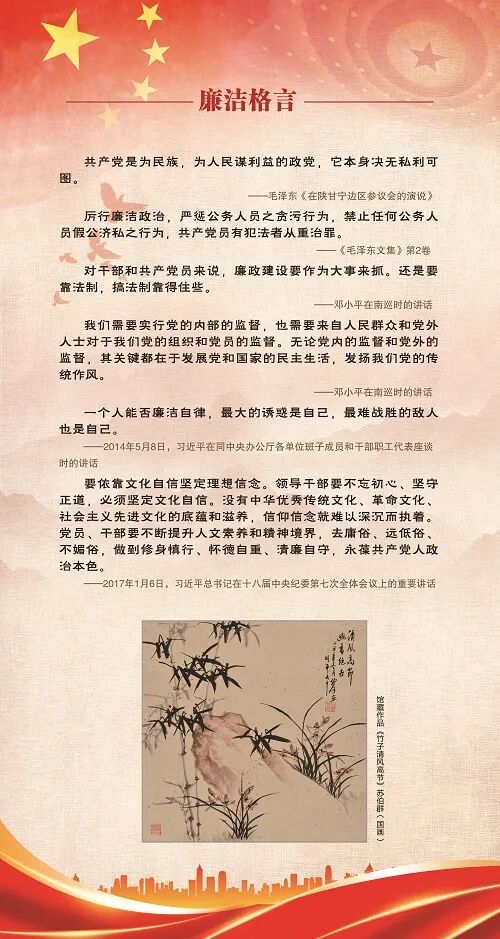 廉洁格言
共产党是为民族，为人民谋利益的政党，它本身决无私利可
图。
——毛泽东《在陕甘宁边区参议会的演说》
厉行廉洁政治，严惩公务人员之贪污行为，禁止任何公务人
员假公济私之行为，共产党员有犯法者从重治罪。
——《毛泽东文集》第2卷
对干部和共产党员来说，廉政建设要作为大事来抓。还是要
靠法制，搞法制靠得住些。
——邓小平在南巡时的讲话
我们需要实行党的内部的监督，也需要来自人民群众和党外
人士对于我们党的组织和党员的监督。无论党内的监督和党外的
监督，其关键都在于发展党和国家的民主生活，发扬我们党的传
统作风。
——邓小平在南巡时的讲话
一个人能否廉洁自律，最大的诱惑是自己，最难战胜的敌人
也是自己。
——2014年5月8日，习近平在同中央办公厅各单位班子成员和干部职工代表座谈
时的讲话
要依靠文化自信坚定理想信念。领导干部要不忘初心、坚守
正道，必须坚定文化自信。没有中华优秀传统文化、革命文化、
社会主义先进文化的底蕴和滋养，信仰信念就难以深沉而执着。
党员、干部要不断提升人文素养和精神境界，去庸俗、远低俗、
不媚俗，做到修身慎行、怀德自重、清廉自守，永葆共产党人政
治本色。
——2017年1月6日，习近平总书记在十八届中央纪委第七次全体会议上的重要讲话
清风高节
馆藏作品《竹子清风高节》苏伯群（国画）